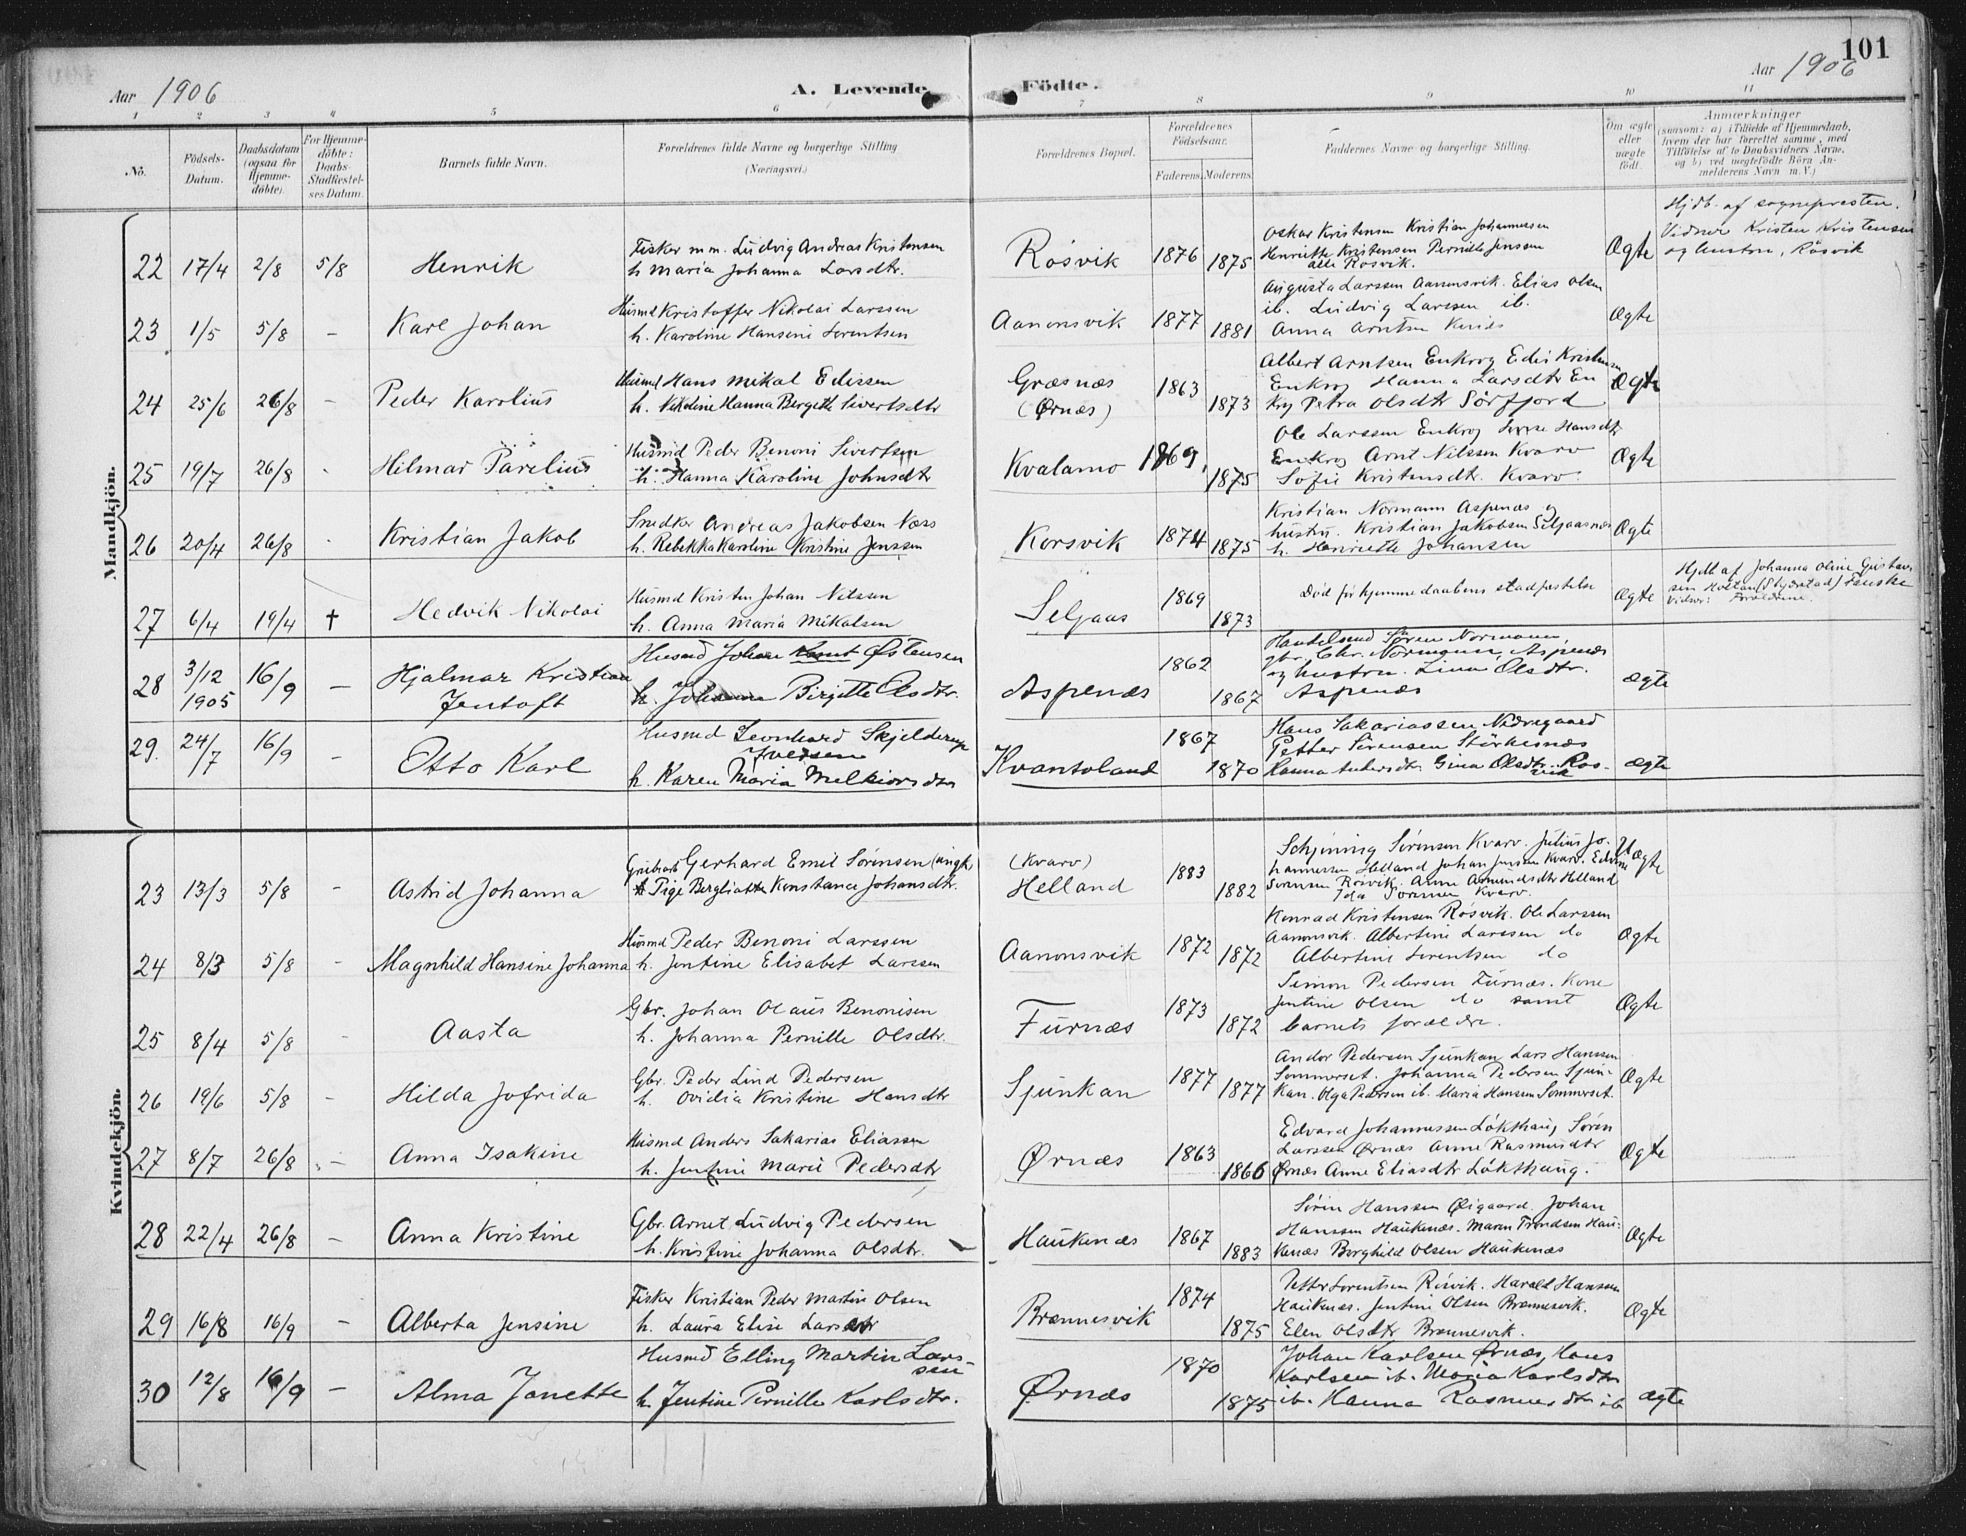 101
Aar 1906
A. Levende
Fødte.
Aar 1906
1 2 3 4 5 6 7 8 9 10 11
No.
Fødsels-
Datum.
Daabsdatum
(ogsaa for
Hjemme-
døbte).
For Hjemme-
døbte:
Daabs-
Stadfæstel-
ses Datum.
Barnets fulde Navn.
Forældrenes fulde Navne og borgerlige Stilling
(Næringsvei.)
Forældrenes Bopæl.
Forældrenes
Fødselsaar.
Faderens. Moderens.
Faddernes Navne og borgerlige Stilling.
Om ægte
eller
uægte
født.
Anmærkninger
(saasom: a) i Tilfælde af Hjemmedaab,
hvem der har forrettet samme, med
Tilføielse af to Daabsvidners Navne,
og b) ved uegtefødte Børn An-
melderens Navn m. V.)
Mandkjön.
22 17/4 2/8 5/8 Henrik
Fisker m.m. Ludvig Andreas Kristensen
h. Maria Johanna Larsdtr.
Rösvik 1876 1875
Oskar Kristensen Kristian Johannessen
Henriette Kristensen Pernille Jenssen
alle Rösvik.
Ægte
Hjdb. af sognepresten.
Vidner Kristen Kristensen
og hustru, Rösvik
23 1/5 5/8 – Karl Johan
Husmd Kristoffer Nikolai Larssen
h. Karoline Hansine Sorentsen
Aanonsvik 1877 1881
Augusta Larssen Aanonsvik. Elias Olsen
ib. Ludvig Larssen ib.
Anna Arntsen
Ægte
24 25/6 26/8 – Peder Karolius
Husmd Hans Mikal Edissen
h. Nikoline Hanna Bergitte Sivertsdtr
Græsnæs
(Ørnæs)
1863 1873
Albert Arntsen Enkrog Edis Kristensen
Enkrog Hanna Larsdtr En
krog Petra Olsdtr Sörfjord
Ægte
25 19/7 26/8 Hilmar Parelius
Husmd Peder Benoni Sivertsen
h. Hanna Karoline Johnsdtr
Kvalamo 1869, 1875
Ole Larssen Enkrog Hansdtr
Enkrog Arnt Nilssen Kvarv
Sofie Kristensdtr. Kvarv.
Ægte
26 20/4 26/8 Kristian Jakob
Snedker Andreas Jakobsen Næss
h. Rebekka Karoline Kristine Jenssen
Korsvik 1874 1875
Kristian Normann Aspenæs og
hustru. Kristian Jakobsen Seljaasnæs
h. Henriette Johansen
Ægte
27 6/4 19/4 † Hedvik Nikolai
Husmd Kristen Johan Nilssen
h. Anna Maria Mikalsen
Seljaas 1869 1873
Död för hjemmedaabens stadfæstelse
Ægte
Hjdb af Johanna Oline Gustav
sen Holtan (Styrstad) Fauske
Vidner: Forældrene.
28 3/12 1905 16/9 – Hjalmar Kristian
Jentoft
Husmd Johan Østensen
h. Birgitte Olsdtr.
Aspenæs 1862 1867
Handelsmd Sören Normann,
gbr. Chr. Normann, Aspenæs
og hustru. Lina Olsdtr.
Aspenæs
ægte
29. 24/7 16/9 – Otto Karl
Husmd Leonhard Skjelderup
Iversen
h. Karen Maria Melkiorsdtr
Kvantoland 1867 1870
Hans Sakariassen Nordregaard
Petter Sörensen Störkesnæs
Hanna Andersdtr. Gina Olsdtr. Ros-
vik
ægte
Kvindekjön.
23 13/3 5/8 – Astrid Johanna
Grubearb Gerhard Emil Sörensen (ungk)
& Pige Bergliotte Konstance Johansdtr.
(Kvarv)
Helland
1883 1882
Schjönning Sörensen Kvarv. Julius Jo-
hannessen Helland Johan Jensen Kvarv. Edvine
Svensen Rösvik. Anna Amundsdtr Helland
Ida Sörensen Kvarv.
Uægte
24 8/3 5/8 – Magnhild Hansine Johanna
Husmd Peder Benoni Larssen
h. Jentine Elisabet Larssen
Aanonsvik 1872 1872
Konrad Kristensen Rösvik. Ole Larssen
Aanonsvik. Albertine Larssen do
Albertine Sorentsen do
Ægte
25 8/4 5/8 – Aasta
Gbr. Johan Olaus Benonisen
h. Johanna Pernille Olsdtr.
Furnæs 1873 1872
Simon Pedersen Furnæs. Kone
Jentine Olsen do samt
barnets forældre.
Ægte
26 19/6 5/8 – Hilda Jofrida
Gbr. Peder Lind Pedersen
h. Ovidia Kristine Hansdtr
Sjunkan 1877 1877
Andor Pedersen Sjunkan, Lars Hanssen
Sommerset. Johanna Pedersen Sjun-
kan. Olga Pedersen ib. Maria Hansen Sommerset.
Ægte
27 8/7 26/8 – Anna Isakine
Husmd Anders Sakarias Eliassen
h. Jentine Marie Pedersdtr
Ørnæs 1863 1866
Edvard Johannessen Lökthaug Sören
Larssen Ørnæs Anne Rasmusdtr
Ørnæs Anne Eliasdtr Lökthaug.
Ægte
28 22/4 26/8 – Anna Kristine
Gbr. Arnet Ludvig Pedersen
h. Kristine Johanna Olsdtr.
Haukenæs 1867 1883
Sörin Hanssen Øigaard. Johan
Hanssen Haukenæs. Maren Trondsen Hau-
kenæs Borghild Olsen Haukenæs
Ægte
29 16/8 16/9 – Alberta Jensine
Fisker Kristian Peder Martin Olsen
h. Laura Elise Larsdtr
Brænnesvik 1874 1875
Petter Sorentsen Rösvik. Harald Hanssen
Haukenæs. Jentine Olsen Brænnesvik.
Elen Olsdtr Brænnesvik.
Ægte
30 12/8 16/9 – Alma Janette
Husmd Elling Martin Lars-
sen
h. Jentine Pernille Karlsdtr.
Ørnæs 1870 1875
Johan Karlsen Ørnæs, Hans
Karlsen ib. Maria Karlsdtr
ib. Hanna Rasmusdtr ib
ægte